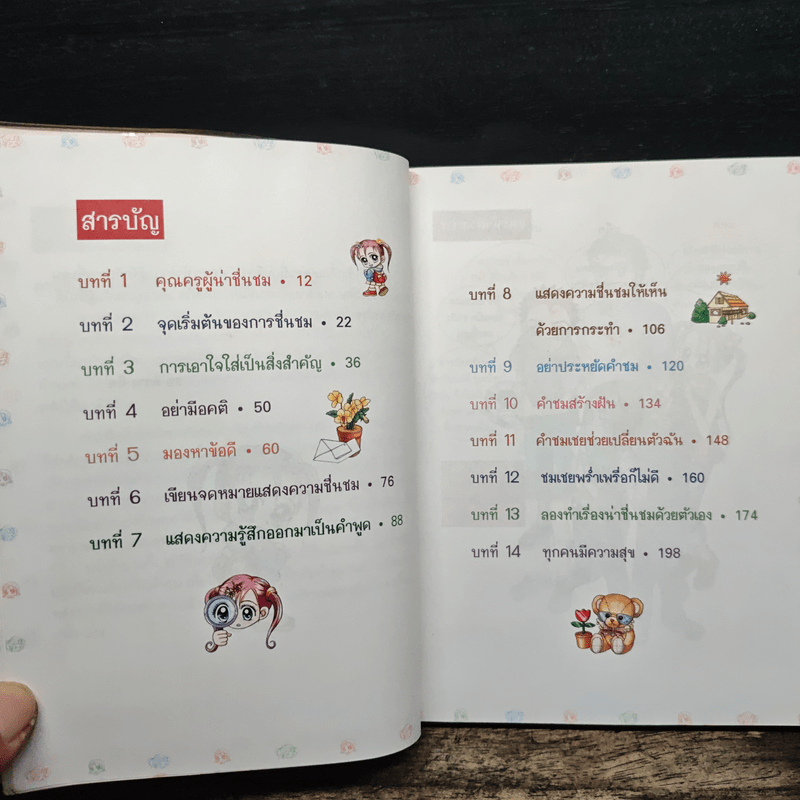 สารบัญ
บทที่ 1 คุณครูผู้น่าชื่นชม • 12
บทที่ 2 จุดเริ่มต้นของการชื่นชม • 22
บทที่ 3 การเอาใจใส่เป็นสิ่งสำคัญ • 36
บทที่ 4 อย่ามีอคติ • 50
บทที่ 5 มองหาข้อดี • 60
บทที่ 6 เขียนจดหมายแสดงความชื่นชม • 76
บทที่ 7 แสดงความรู้สึกออกมาเป็นคำพูด • 88
บทที่ 8 แสดงความชื่นชมให้เห็น
ด้วยการกระทำ • 106
บทที่ 9 อย่าประหยัดคำชม • 120
บทที่ 10 คำชมสร้างฝัน • 134
บทที่ 11 คำชมเชยช่วยเปลี่ยนตัวฉัน • 148
บทที่ 12 ชมเชยพร่ำเพรื่อก็ไม่ดี • 160
บทที่ 13 ลองทำเรื่องน่าชื่นชมด้วยตัวเอง • 174
บทที่ 14 ทุกคนมีความสุข • 198